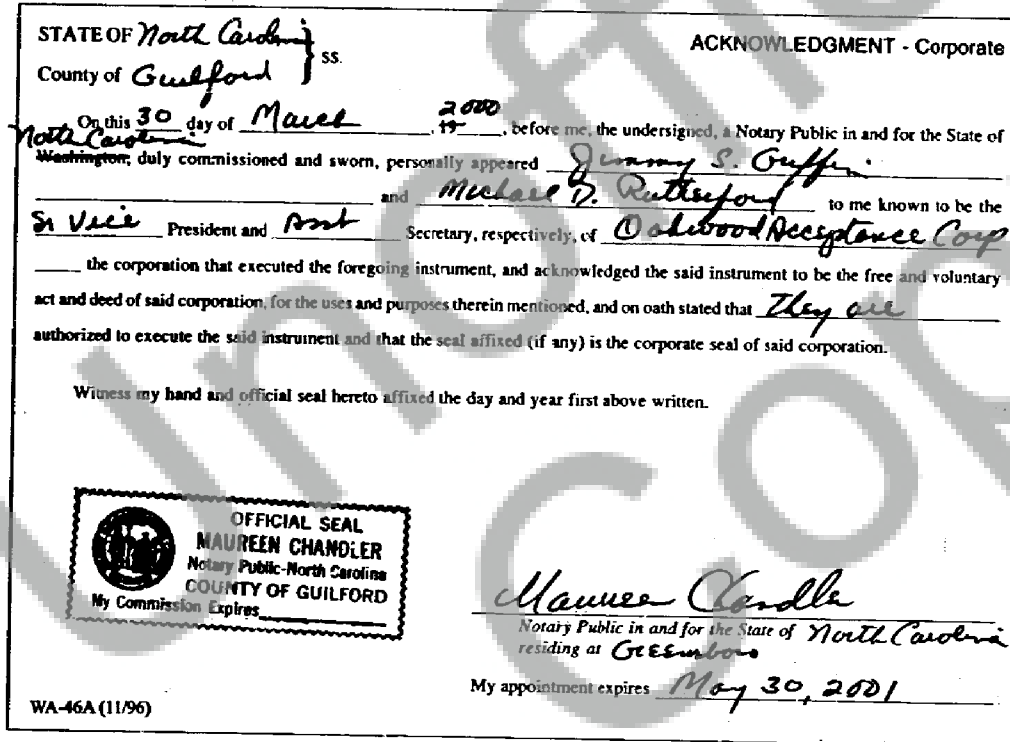 STATE OF North Carolina } ss.
ACKNOWLEDGMENT - Corporate
County of Guilford
On this 30 day of March, 19 2000, before me, the undersigned, a Notary Public in and for the State of
North Carolina
Washington, duly commissioned and sworn, personally appeared Jimmy S. Griffin
and Michael D. Rutherford to me known to be the
Sr Vice President and Asst Secretary, respectively, of Oakwood Acceptance Corp
the corporation that executed the foregoing instrument, and acknowledged the said instrument to be the free and voluntary
act and deed of said corporation, for the uses and purposes therein mentioned, and on oath stated that They are
authorized to execute the said instrument and that the seal affixed (if any) is the corporate seal of said corporation.
Witness my hand and official seal hereto affixed the day and year first above written.
OFFICIAL SEAL
MAUREEN CHANDLER
Notary Public-North Carolina
COUNTY OF GUILFORD
My Commission Expires
Maureen Chandler
Notary Public in and for the State of North Carolina
residing at Greensboro
My appointment expires May 30, 2001
WA-46A (11/96)